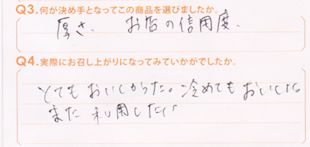 Q3.何が決め手となってこの商品を選びましたか。
厚さ、お店の信用度、
Q4.実際にお召し上がりになってみていかがでしたか。
とてもおいしかった。冷めてもおいしい。
また利用したい